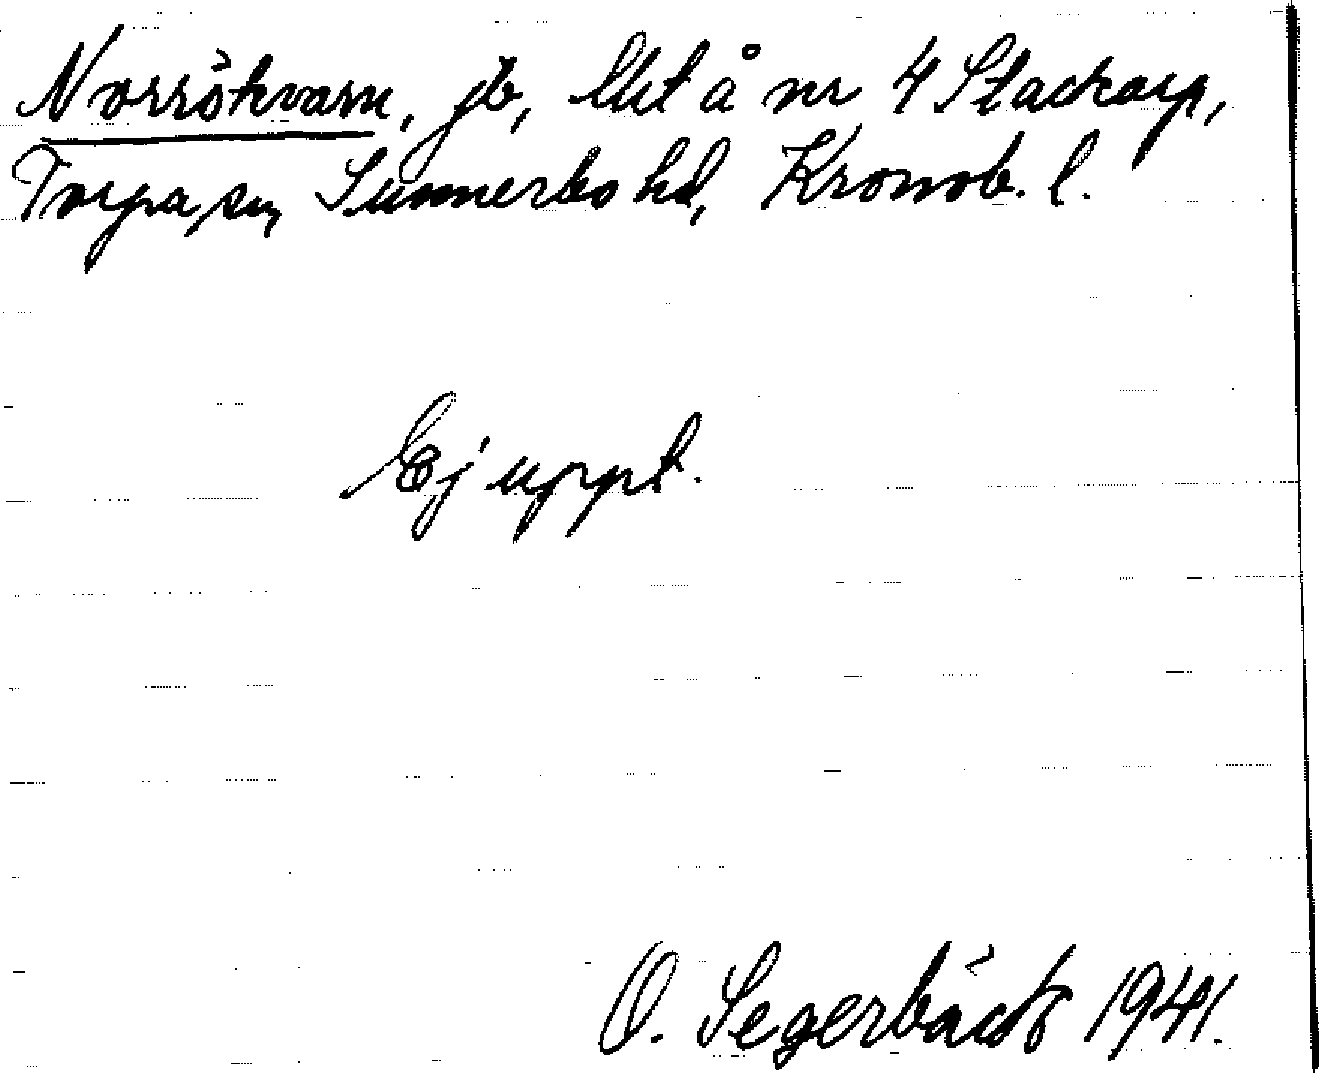 Norrökvarn, jb, Utt å nr 4 Stackarp,
Torpa sn, Sunnerbo hd, Kronob. l.
Ej uppt.
O. Segerbäck 1941.